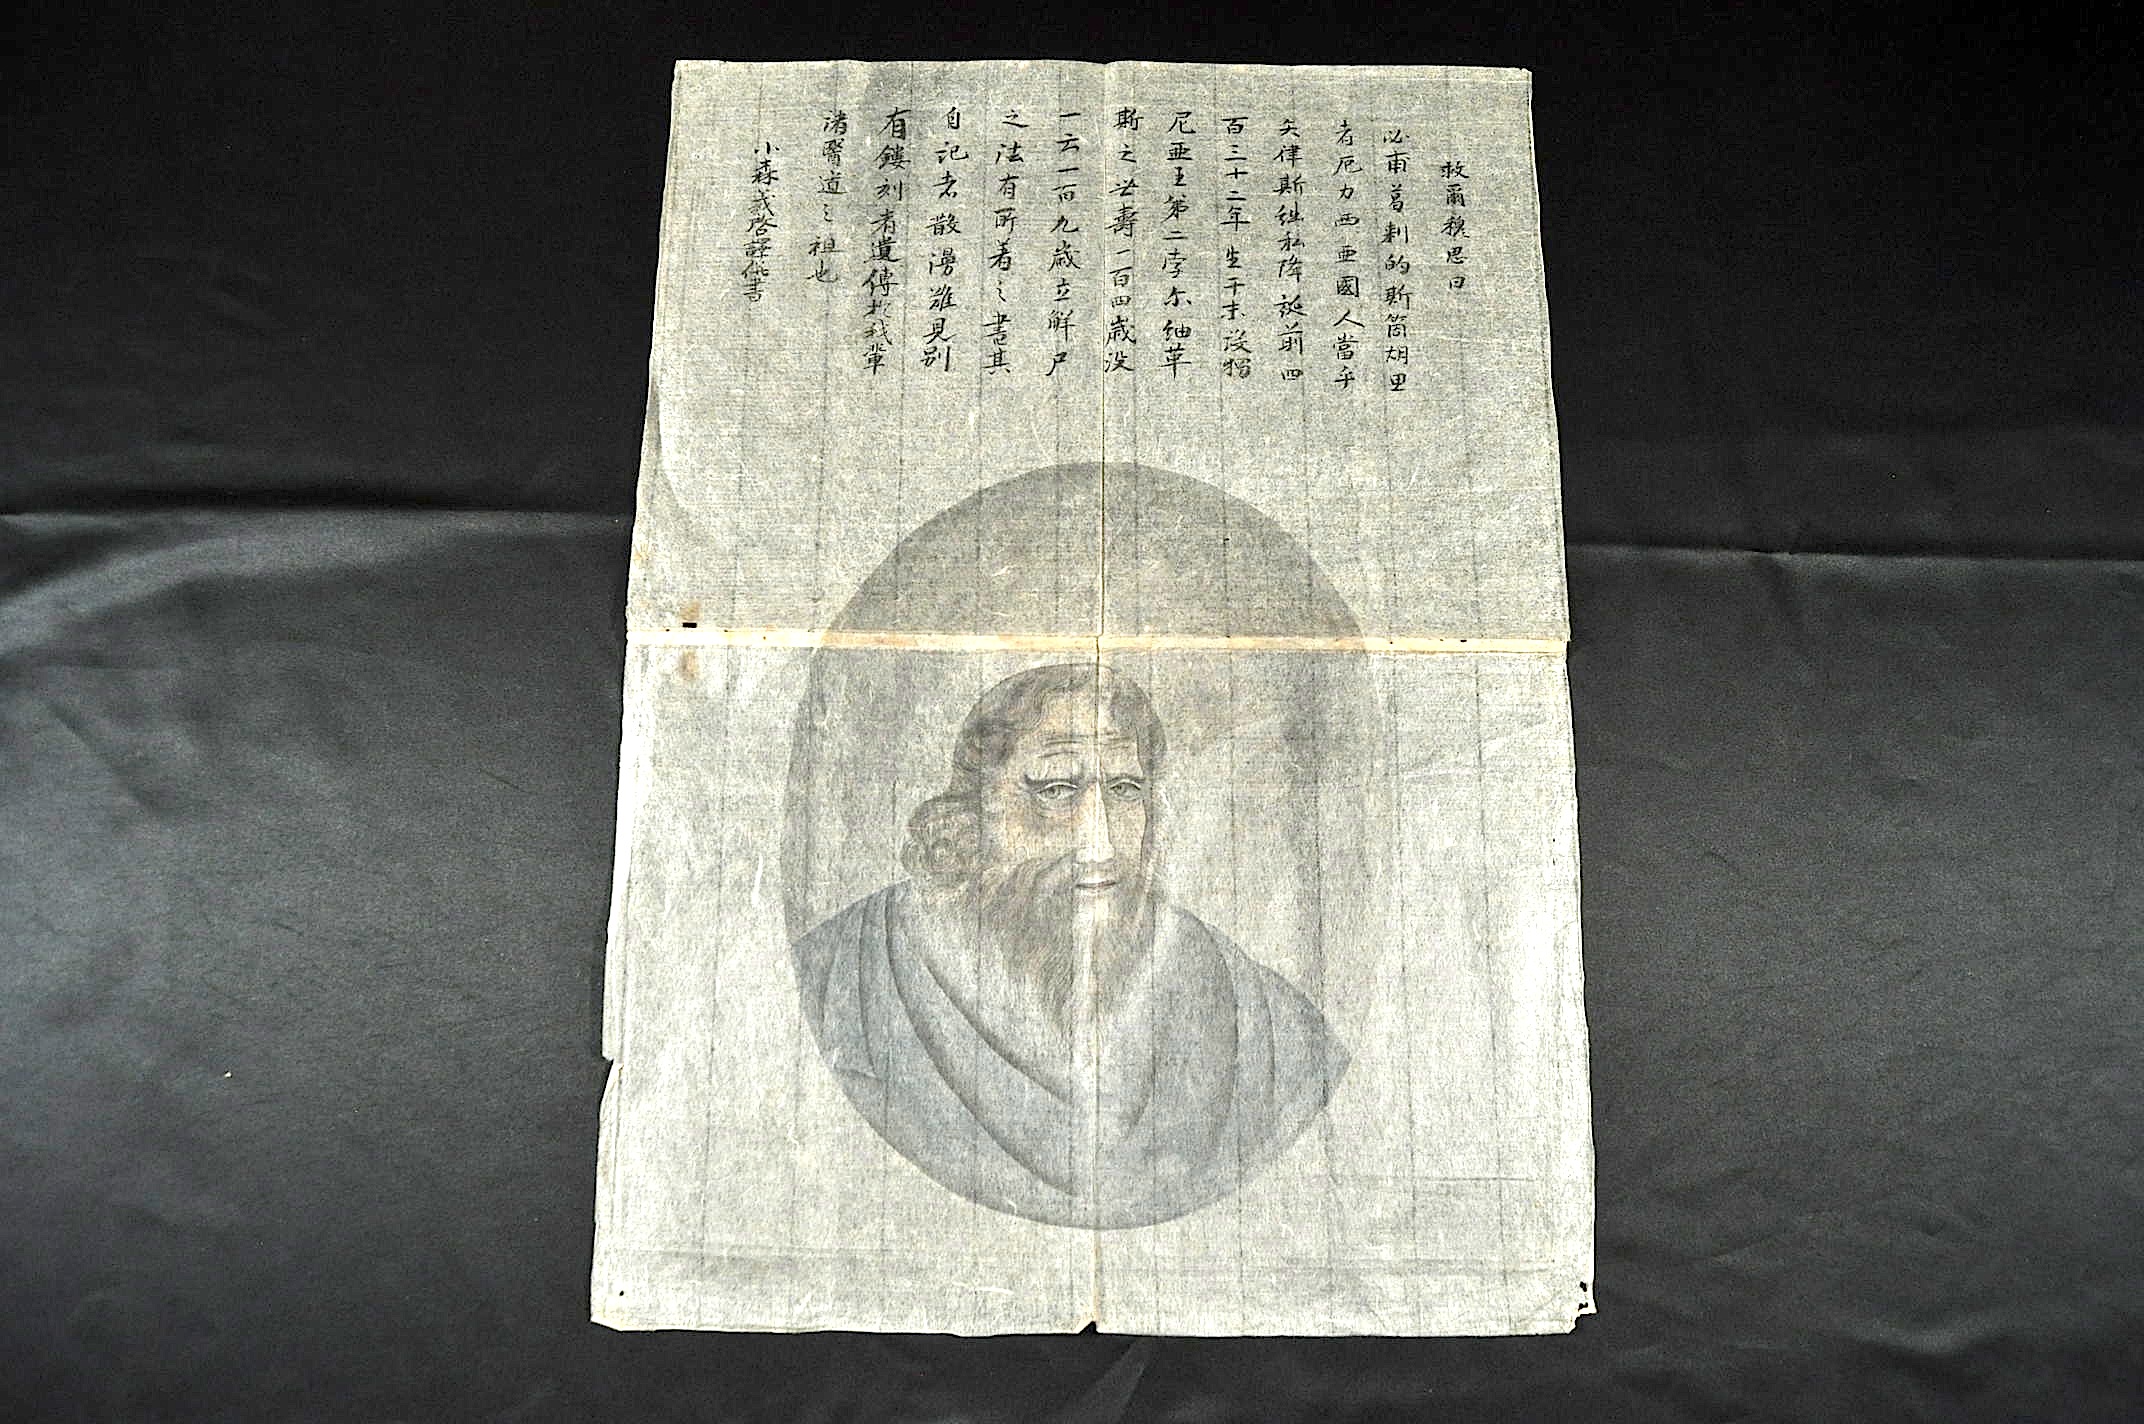 救爾穆思曰
必甫葛剌的斯箇胡里
者厄力西亜國人當乎
矢律斯紲私降誕前四
百三十二年生于末設獨
尼亜王第二孛尓紬革
斯之世壽一百四歳没
一云一百九歳立解尸
之法有所着之書其
自記者散漫難見别
有鏤刻者遺傳於我輩
渚醫道之祖也
小森義啓譯併書